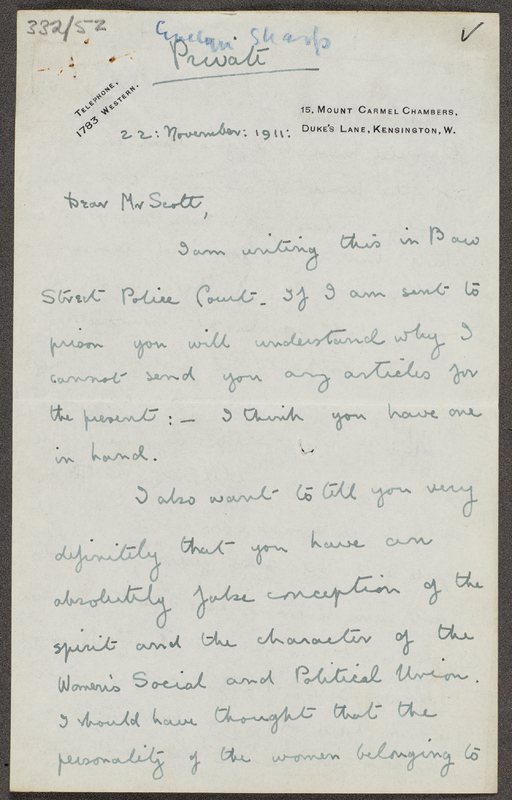 332/52
Evelyn Sharp
Private
TELEPHONE,
1783 WESTERN.
15, MOUNT CARMEL CHAMBERS,
DUKE'S LANE, KENSINGTON, W.
22: November: 1911:
Dear Mr Scott,
I am writing this in Bow
Street Police Court. If I am sent to
prison you will understand why I
cannot send you any articles for
the present :— I think you have one
in hand.
I also want to tell you very
definitely that you have an
absolutely false conception of the
spirit and the character of the
Women's Social and Political Union.
I should have thought that the
personality of the women belonging to